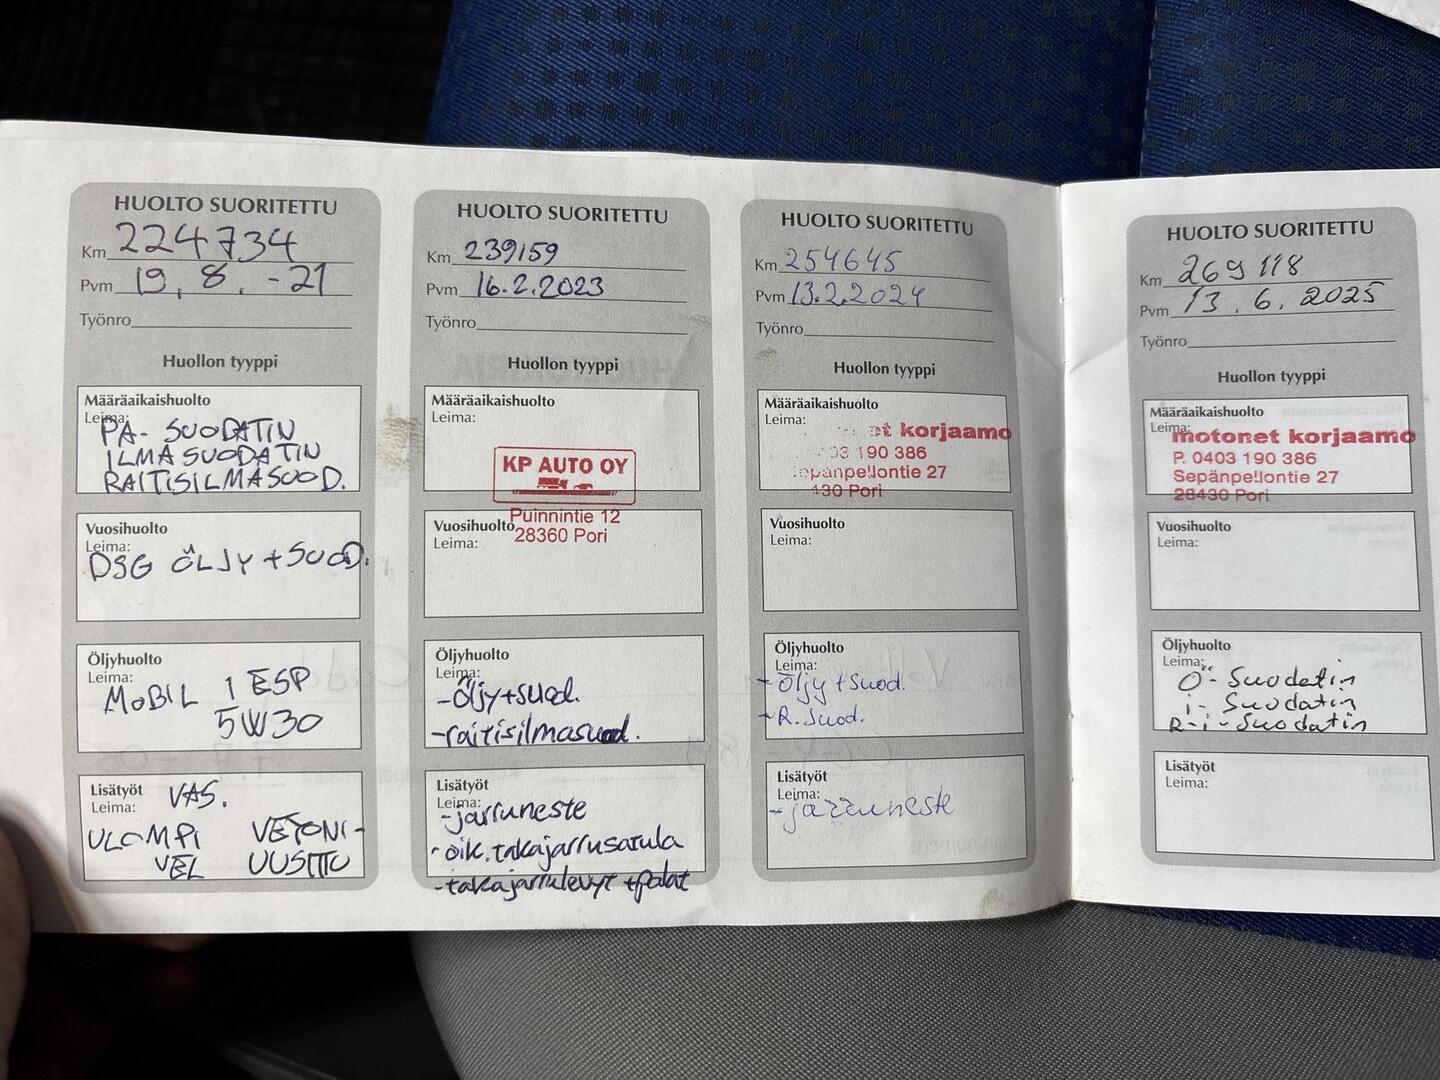 HUOLTO SUORITETTU
Km 224734
Pvm 19, 8. -21
Työnro
Huollon tyyppi
Määräaikaishuolto
Leima:
PA- SUODATIN
ILMASUODATIN
RAITISILMASUOD.
Vuosihuolto
Leima:
DSG ÖLJY + SUOD.
Öljyhuolto
Leima:
MOBIL 1 ESP
5W30
Lisätyöt
Leima:
VAS.
ULOMPI VETONI-
VEL UUSITTU
HUOLTO SUORITETTU
Km 239159
Pvm 16.2.2023
Työnro
Huollon tyyppi
Määräaikaishuolto
Leima:
KP AUTO OY
Puinnintie 12
28360 Pori
Vuosihuolto
Leima:
Öljyhuolto
Leima:
-Öljy+suod.
-raitisilmasuod.
Lisätyöt
Leima:
-jarruneste
-oik.takajarrusatula
-takajarrulevyt +palat
HUOLTO SUORITETTU
Km 254645
Pvm 13.2.2024
Työnro
Huollon tyyppi
Määräaikaishuolto
Leima:
et korjaamo
03 190 386
epänpellontie 27
430 Pori
Vuosihuolto
Leima:
Öljyhuolto
Leima:
- Öljy +suod.
- R.suod.
Lisätyöt
Leima:
- jarruneste
HUOLTO SUORITETTU
Km 269118
Pvm 13.6.2025
Työnro
Huollon tyyppi
Määräaikaishuolto
Leima:
motonet korjaamo
P. 0403 190 386
Sepänpellontie 27
28430 Pori
Vuosihuolto
Leima:
Öljyhuolto
Leima:
Ö - Suodatin
i - Suodatin
R-i - Suodatin
Lisätyöt
Leima: